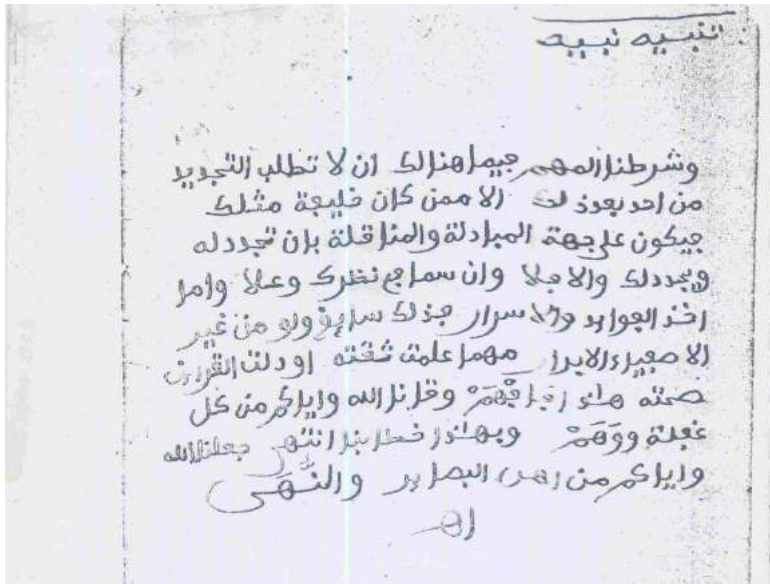 تنبيه نبيه
وشرطنا المهم فيما هنالك ان لا تطلب التجديد
من احد بعد ذلك الا ممن كان خليفة مثلك
فيكون على جهة المبادلة والمناقلة بان تجدد له
ويجدد لك والا فلا وان سما في نظرك وعلا واما
اخذ الفوايد والاسرار فذلك سايغ ولو من غير
الاصفياء الابرار مهما علمت ثقته او دلت القراين
صحته هاذا فافهم وقانا الله واياكم من كل
غفلة ووهم وبهاذا خطابنا انتهى جعلنا الله
واياكم من اهل البصاير والنهى
اهـ